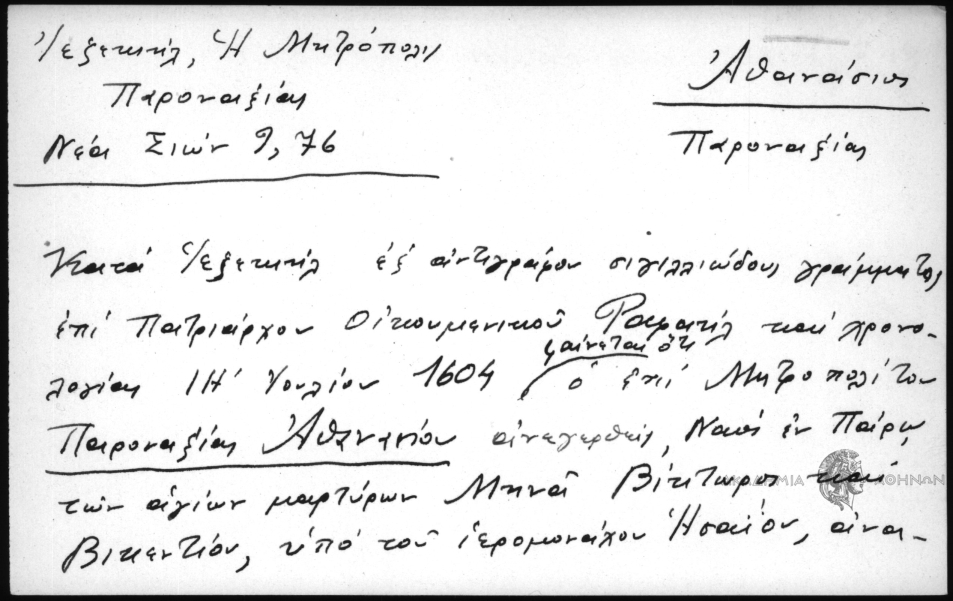 Ἰεζεκιήλ, Ἡ Μητρόπολις
Παροναξίας
Νέα Σιών 9, 76
Ἀθανάσιος
Παροναξίας
Κατά Ἰεζεκιήλ ἐξ ἀντιγράφου σιγιλλιώδους γράμματος
ἐπί Πατριάρχου Οἰκουμενικοῦ Ραφαήλ καί χρονο-
λογίας ΙΗ' Ἰουλίου 1604
φαίνεται ὅτι
ὁ ἐπί Μητροπολίτου
Παροναξίας Ἀθανασίου ἀνεγερθείς, Ναός ἐν Πάρῳ,
τῶν ἁγίων μαρτύρων Μηνᾶ Βίκτωρος καί
ΑΚΑΔΗΜΙΑ ΑΘΗΝΩΝ
Βικεντίου, ὑπό τοῦ ἱερομονάχου Ἡσαΐου, ἀνα-